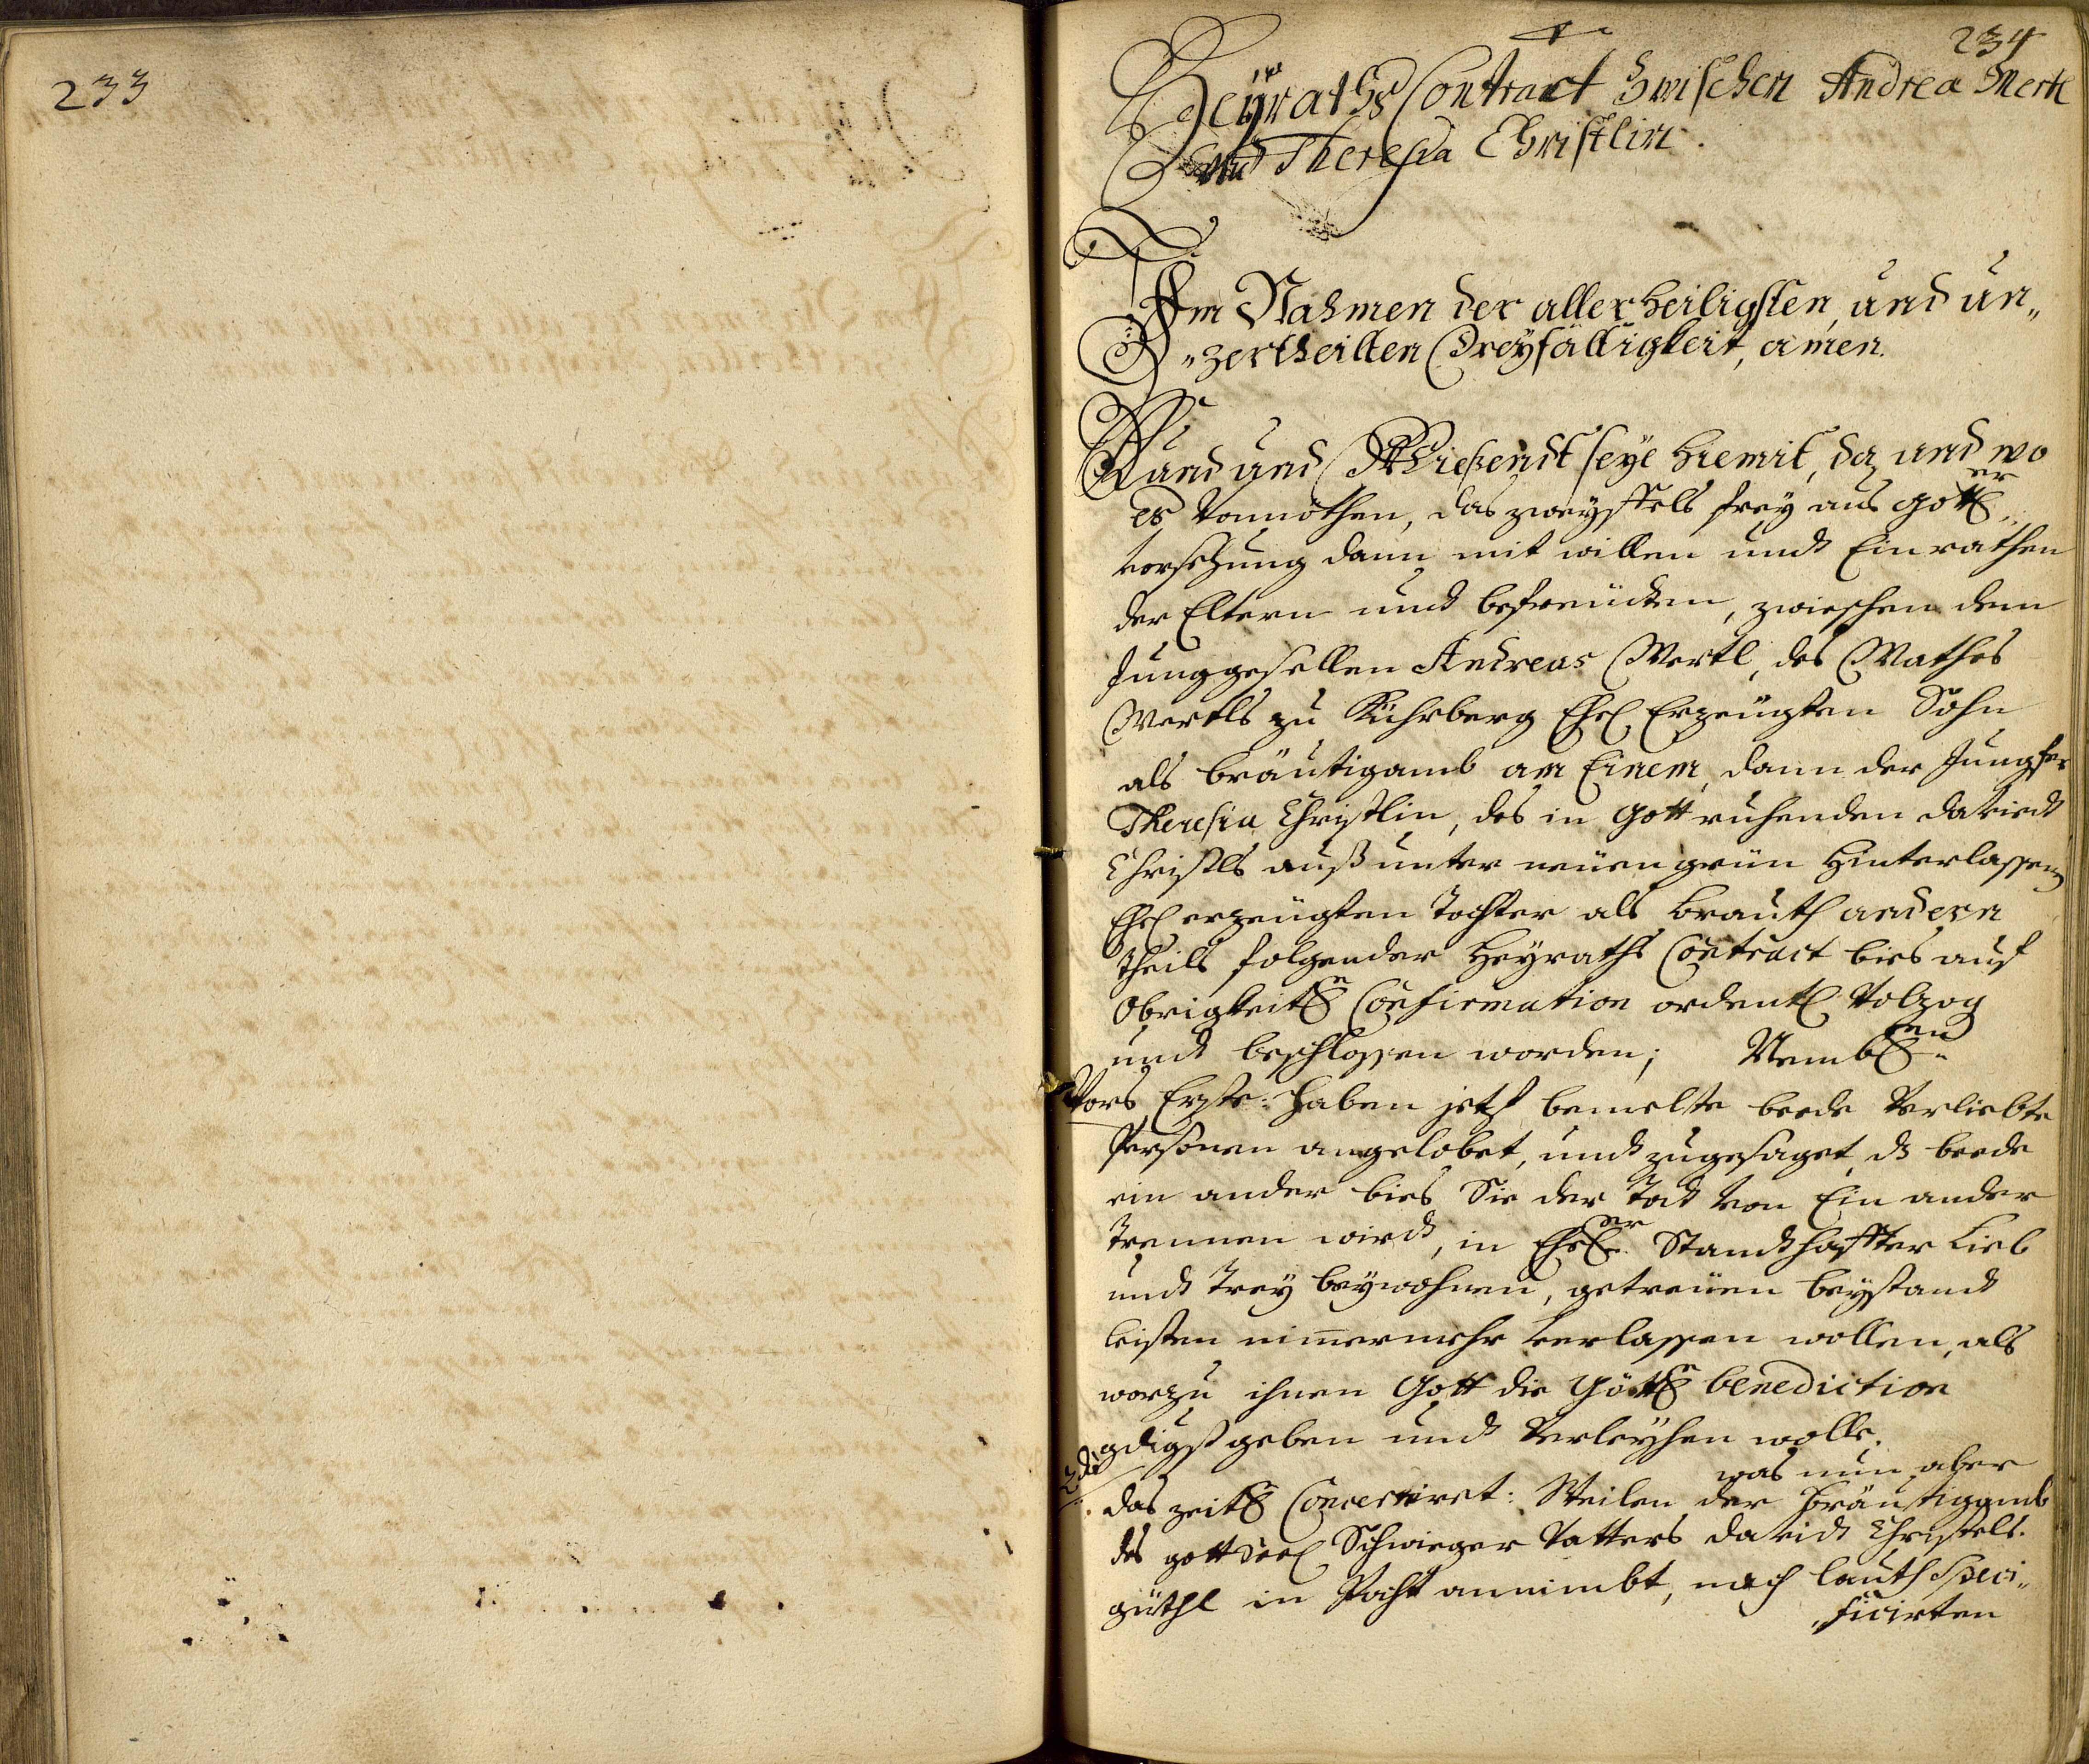 233
234
Heÿraths Contract Zwischen Andrea Mertl
und Theresia Christlin.
Im Nahmen der allerheiligsten, und un„
„zertheilten Dreÿfältigkeit, amen.
Kund und Wießendt seÿe hiemit, da und wo
es Vonnöthen, das zweÿffels freÿ aus Gottl.er
vorsehung dann mit willen undt Einrathen
der Eltern undt befreündten, zwischen dem
Junggesellen Andreas Mertl, des Mathes
Mertls zu Kührberg Ehel. Erzeügten Sohn
als bräutigamb am Einem, dann der Jungfer
Theresia Christlin, des in Gott ruhenden davidt
Christls auß unter neuengrün hinterlassen
Ehel. erzeügten Tochter als brauth andern
theils folgender Heÿraths Contract bies auf
Obrigkeitl.e Confirmation ordentl. Volzog
undt beschlossen worden; Nembl.en
Vors Erste: haben jetz bemelte beede Verliebte
Persohnen angelobet, undt zugesaget, d beede
ein ander bies Sie der Todt von Ein ander
Trennen wirdt, in Ehel.er Standthaffter Lieb
undt Treÿ beÿwohnen, getreüen beÿstandt
leisten nimermehr verlassen wollen, als
worzu ihnen Gott die Göttl.e benediction
gdigst geben undt Verleÿhen wolle.
2do was nun aber
das zeitl.e Concertiret: Weilen der bräutigamb
des gott Seel. Schwieger Vatters davidt Christels
güthl in Pacht annimbt, nach lauth Speci„
„ficirten